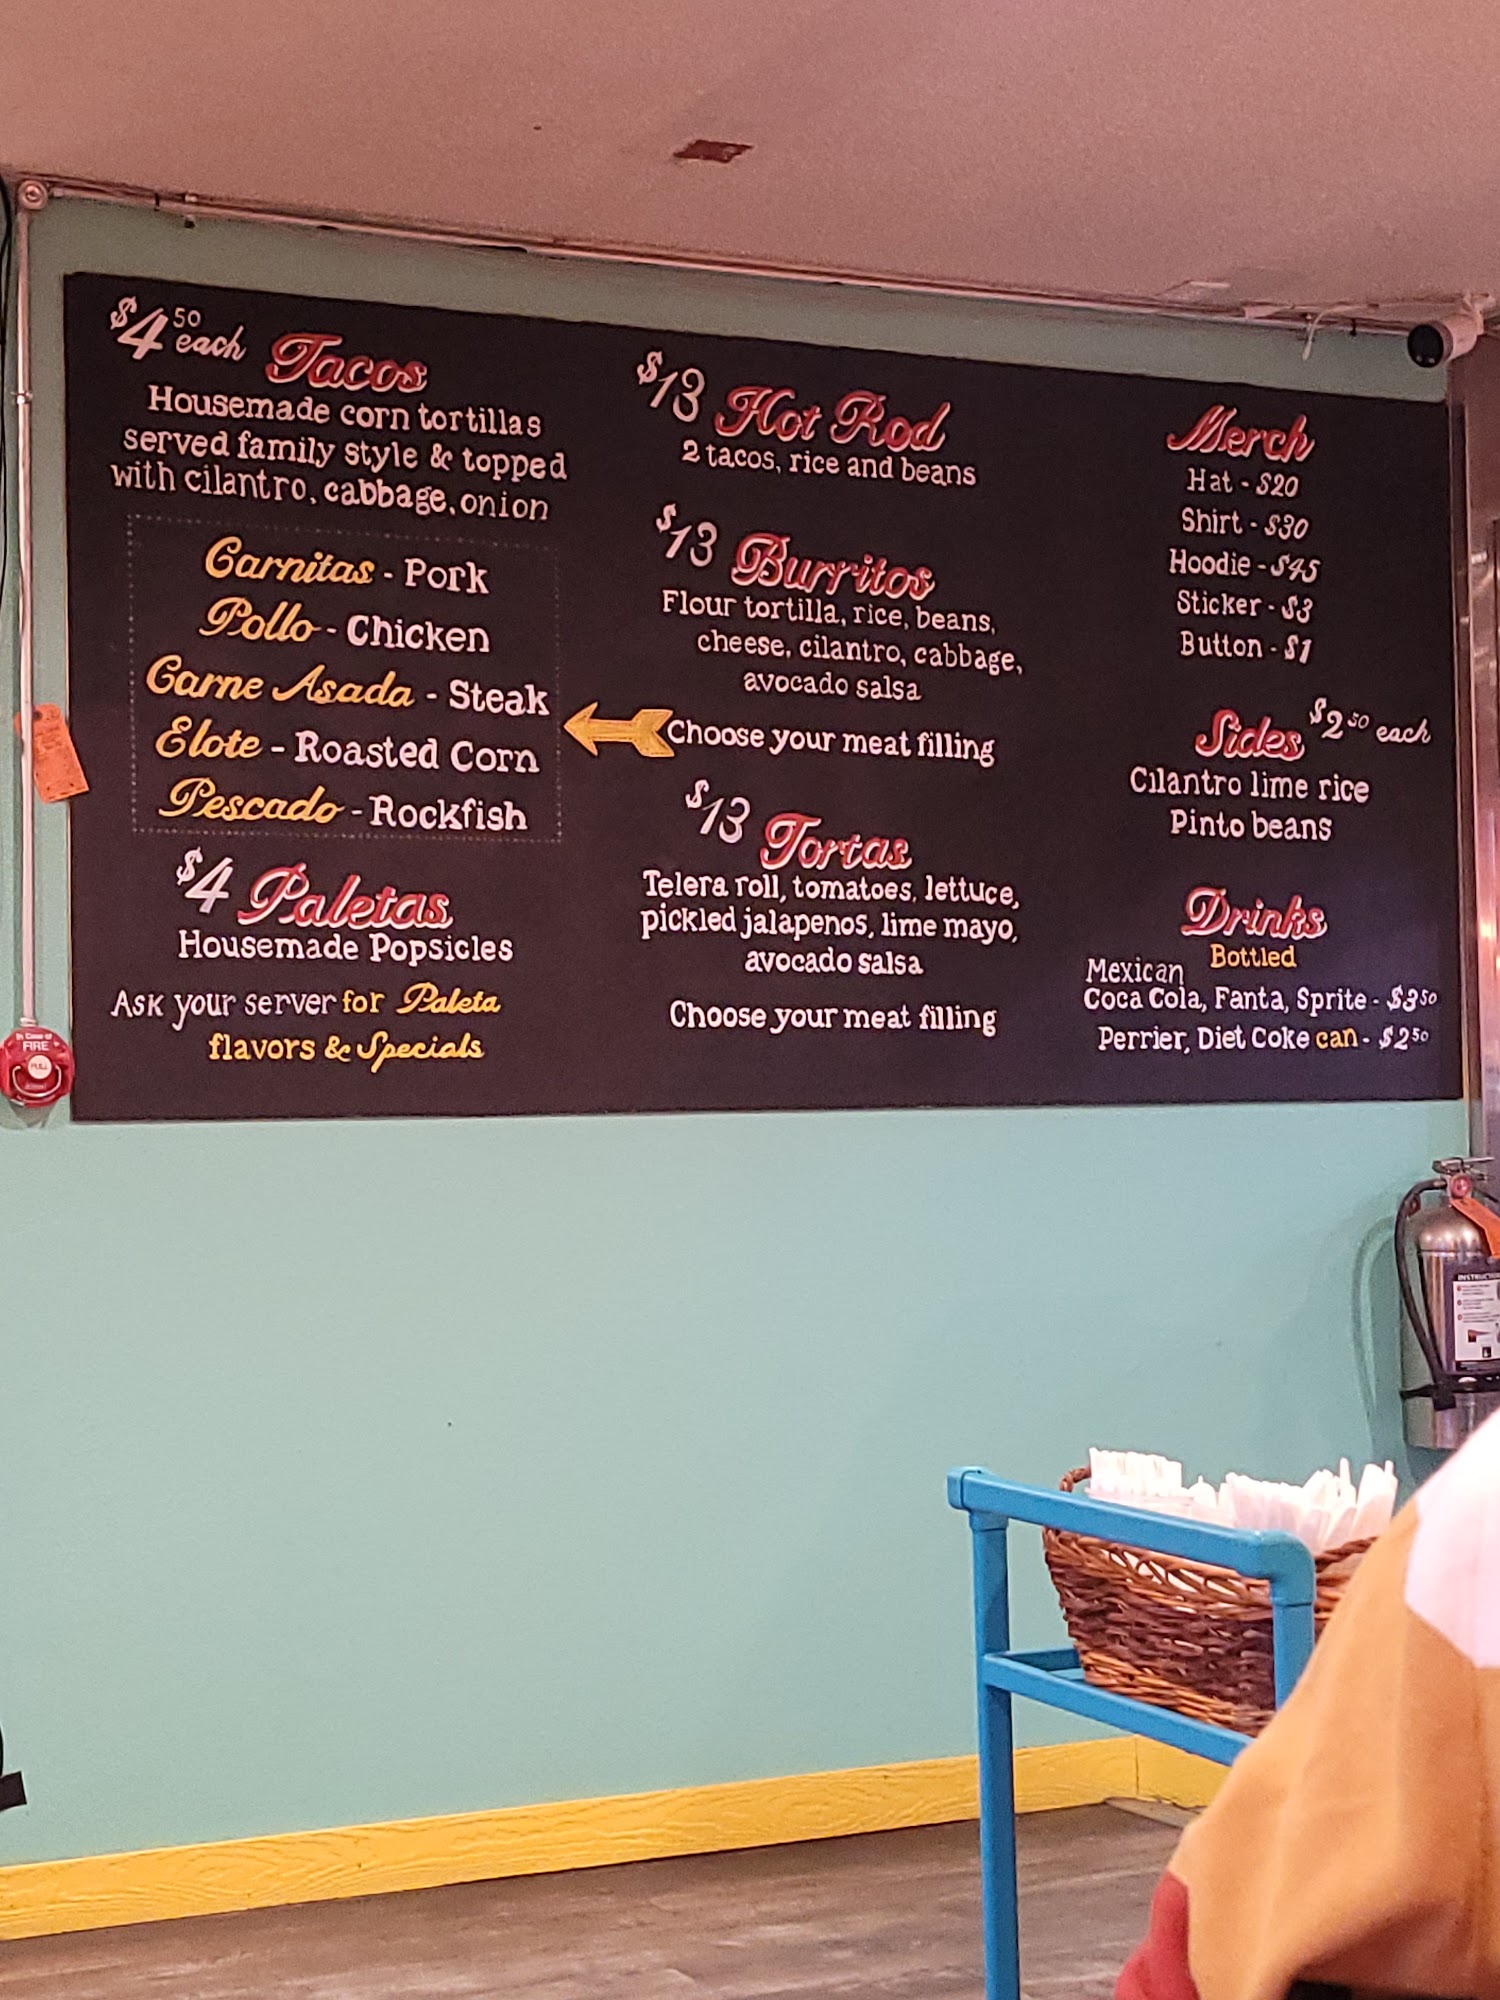 $4 50 each Tacos
Housemade corn tortillas
served family style & topped
with cilantro, cabbage, onion
Carnitas - Pork
Pollo - Chicken
Carne Asada - Steak
Elote - Roasted Corn
Pescado - Rockfish
$4 Paletas
Housemade Popsicles
Ask your server for Paleta
flavors & Specials
$13 Hot Rod
2 tacos, rice and beans
$13 Burritos
Flour tortilla, rice, beans,
cheese, cilantro, cabbage,
avocado salsa
Choose your meat filling
$13 Tortas
Telera roll, tomatoes, lettuce,
pickled jalapenos, lime mayo,
avocado salsa
Choose your meat filling
Merch
Hat - $20
Shirt - $30
Hoodie - $45
Sticker - $3
Button - $1
Sides $2 50 each
Cilantro lime rice
Pinto beans
Drinks
Bottled
Mexican
Coca Cola, Fanta, Sprite - $3 50
Perrier, Diet Coke can - $2 50
In Case of
FIRE
PULL